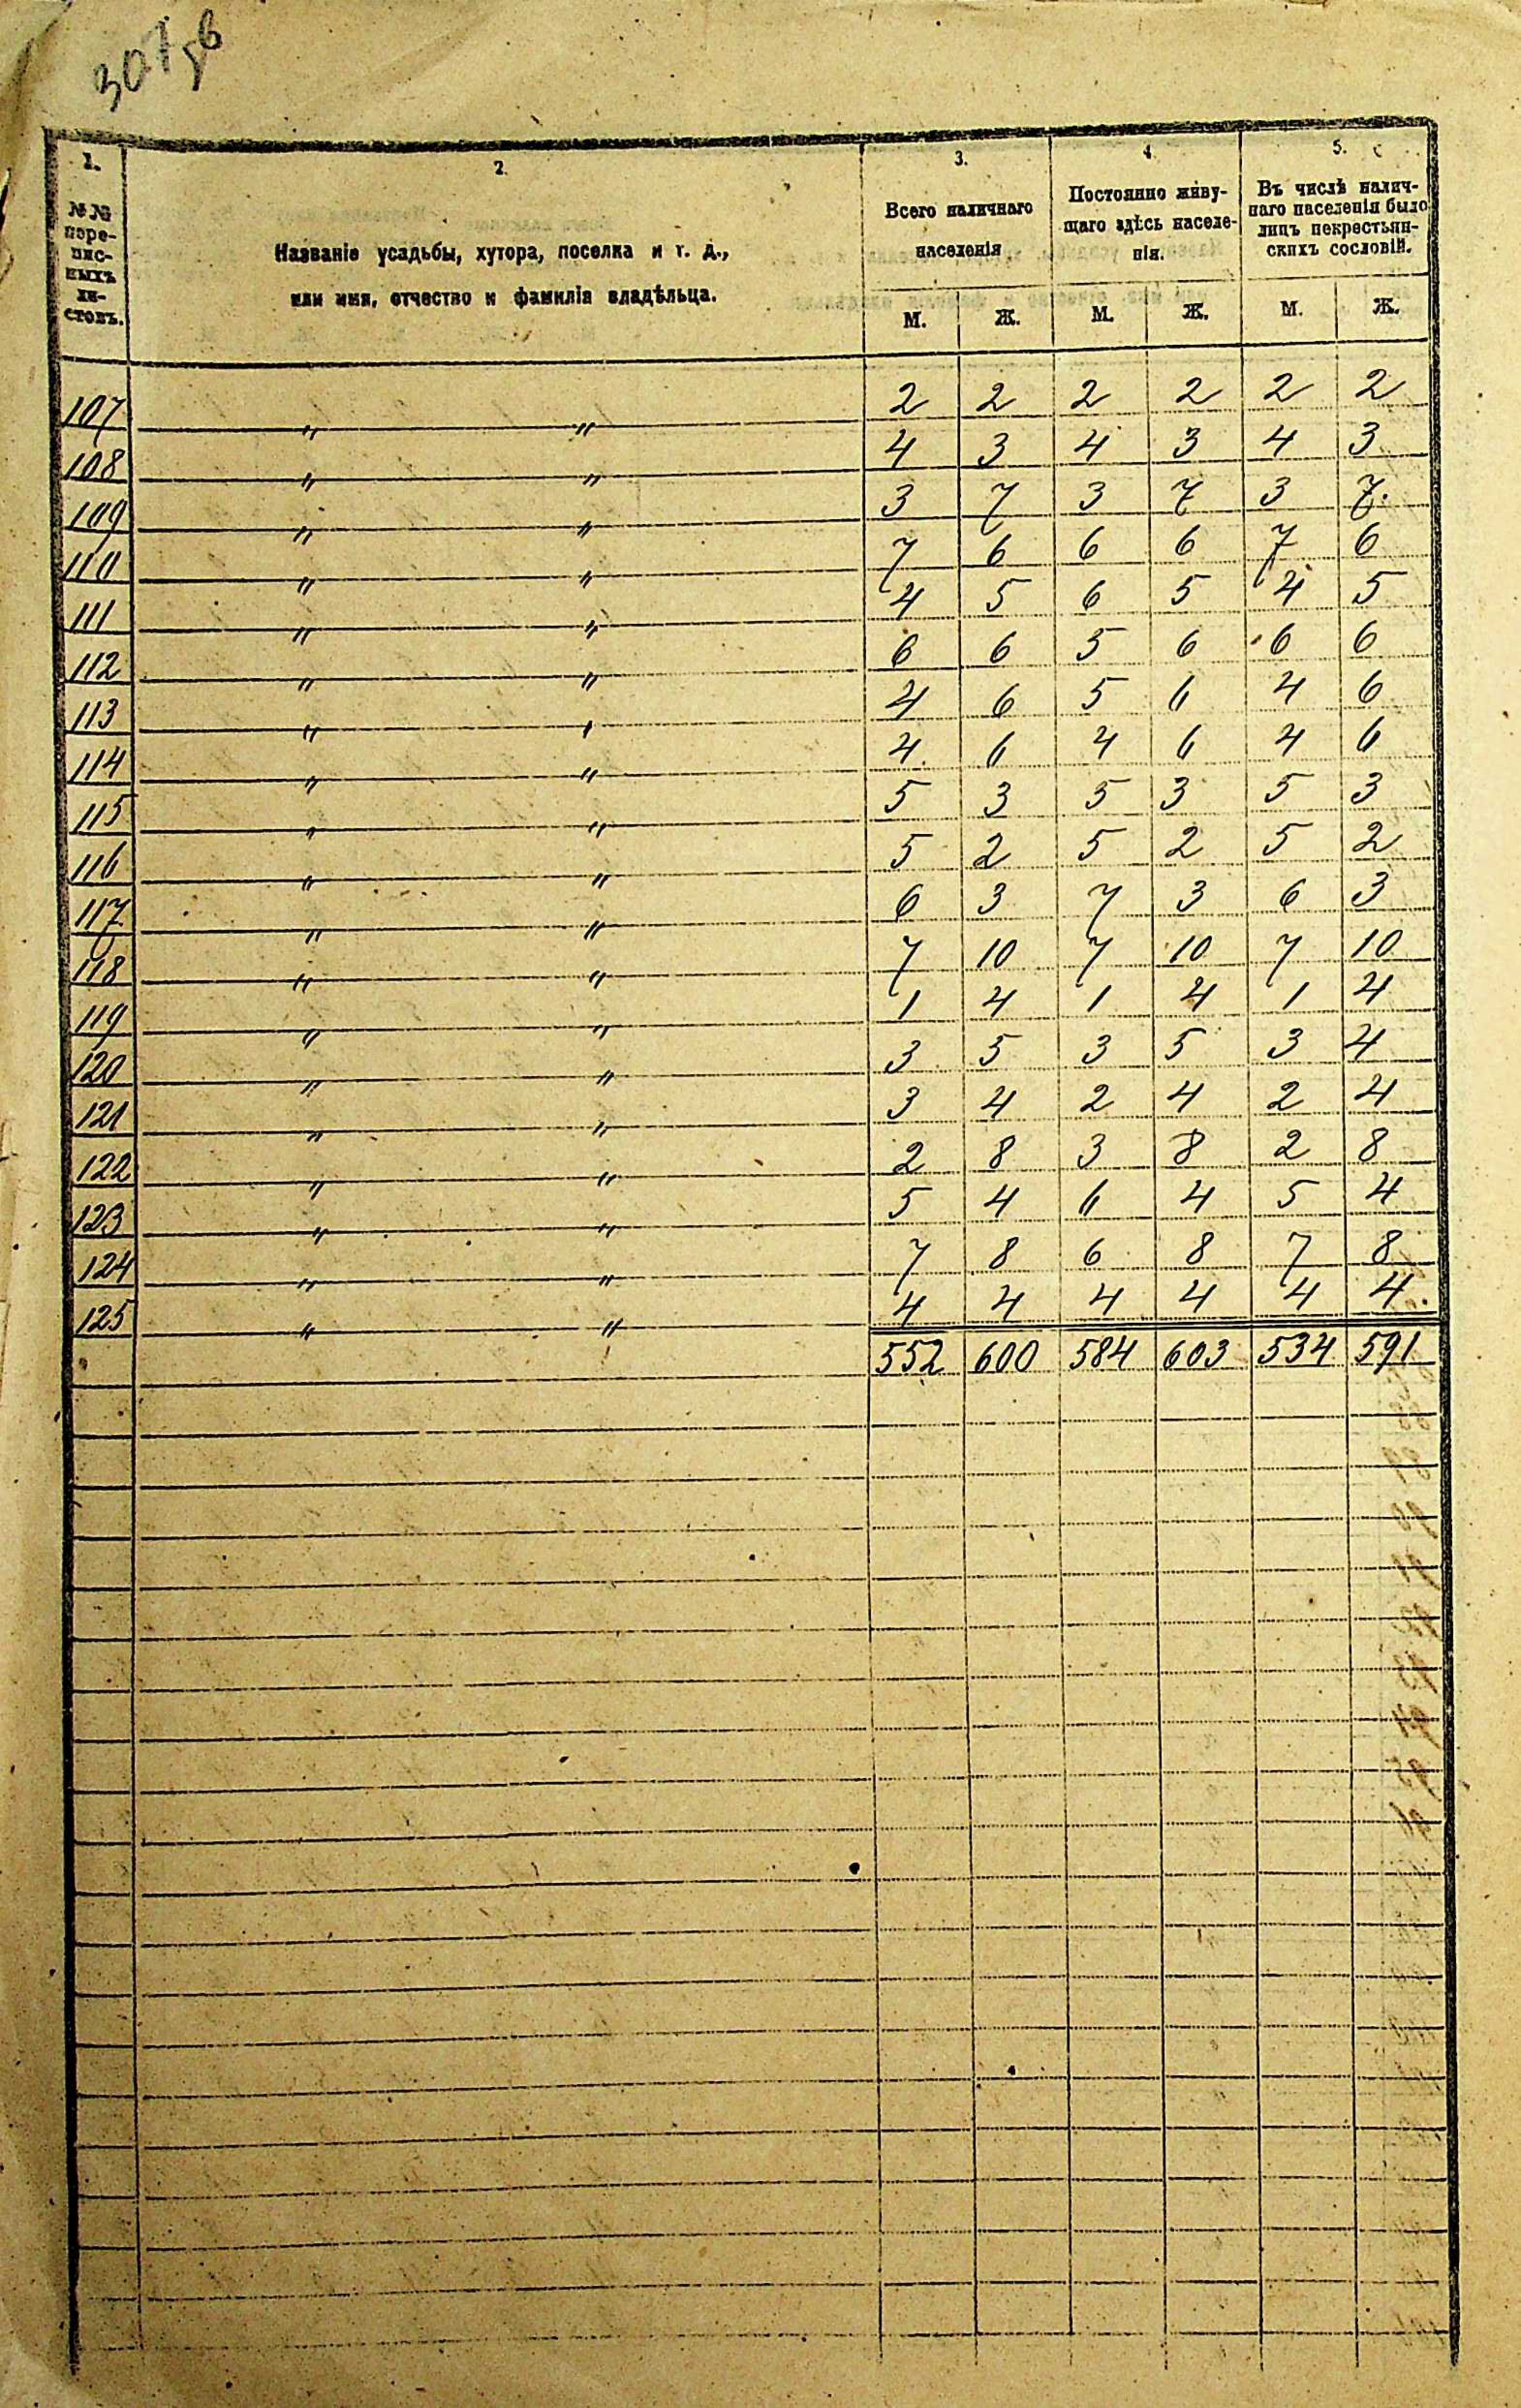 307 56
1. 2. 3. 4. 5.
№№ пере-писныхъ ли-стовъ.
Названіе усадьбы, хутора, поселка и т. д.,
или имя, отчество и фамилія владѣльца.
Всего наличнаго
населенія
Постоянно живу-
щаго здѣсь населе-
нія.
Въ числѣ налич-
наго населенія было
лицъ некрестьян-
скихъ сословій.
М. Ж. М. Ж. М. Ж.
107 " " 2 2 2 2 2 2
108 " " 4 3 4 3 4 3
109 " " 3 7 3 7 3 7.
110 " " 7 6 6 6 7 6
111 " " 4 5 6 5 4 5
112 " " 6 6 5 6 6 6
113 " " 4 6 5 6 4 6
114 " " 4 6 4 6 4 6
115 " " 5 3 5 3 5 3
116 " " 5 2 5 2 5 2
117 " " 6 3 7 3 6 3
118 " " 7 10 7 10 7 10
119 " " 1 4 1 4 1 4
120 " " 3 5 3 5 3 4
121 " " 3 4 2 4 2 4
122 " " 2 8 3 8 2 8
123 " " 5 4 6 4 5 4
124 " " 7 8 6 8 7 8
125 " " 4 4 4 4 4 4.
552 600 584 603 534 591